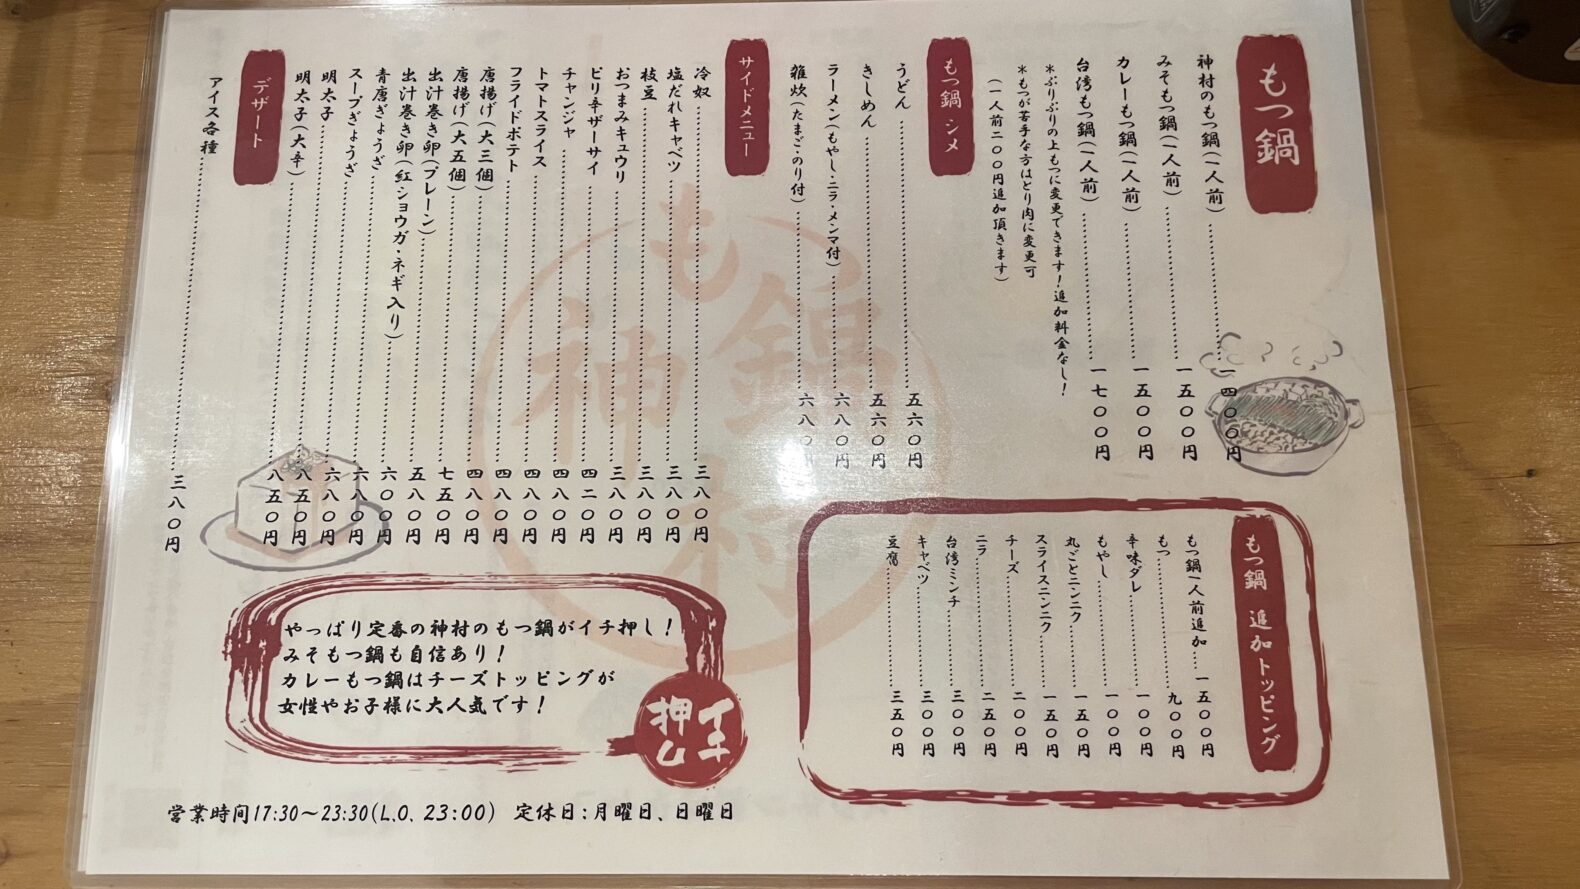 もつ鍋
神村のもつ鍋(一人前)…………一四〇〇円
みそもつ鍋(一人前)…………一五〇〇円
カレーもつ鍋(一人前)…………一五〇〇円
台湾もつ鍋(一人前)…………一七〇〇円
*ぷりぷりの上もつに変更できます!追加料金なし!
*もつが苦手な方はとり肉に変更可
(一人前二〇〇円追加頂きます)
もつ鍋 シメ
うどん…………五六〇円
きしめん…………五六〇円
ラーメン(もやし・ニラ・メンマ付)…………六八〇円
雑炊(たまご・のり付)…………六八〇円
サイドメニュー
冷奴…………三八〇円
塩だれキャベツ…………三八〇円
枝豆…………三八〇円
おつまみキュウリ…………三八〇円
ピリ辛ザーサイ…………四二〇円
チャンジャ…………四八〇円
トマトスライス…………四八〇円
フライドポテト…………四八〇円
唐揚げ(大三個)…………四八〇円
唐揚げ(大五個)…………七五〇円
出汁巻き卵(プレーン)…………五八〇円
出汁巻き卵(紅ショウガ・ネギ入り)…………六〇〇円
青唐ぎょうざ…………六八〇円
スープぎょうざ…………六八〇円
明太子…………八五〇円
明太子(大辛)…………八五〇円
デザート
アイス各種…………三八〇円
もつ鍋 追加トッピング
もつ鍋一人前追加……一五〇〇円
もつ…………九〇〇円
辛味ダレ…………一〇〇円
もやし…………一〇〇円
丸ごとニンニク…………一五〇円
スライスニンニク…………一五〇円
チーズ…………二〇〇円
ニラ…………二五〇円
台湾ミンチ…………三〇〇円
キャベツ…………三〇〇円
豆腐…………三五〇円
やっぱり定番の神村のもつ鍋がイチ押し!
みそもつ鍋も自信あり!
カレーもつ鍋はチーズトッピングが
女性やお子様に大人気です!
イチ押し
営業時間17:30〜23:30(L.O. 23:00) 定休日:月曜日、日曜日
もつ鍋神村